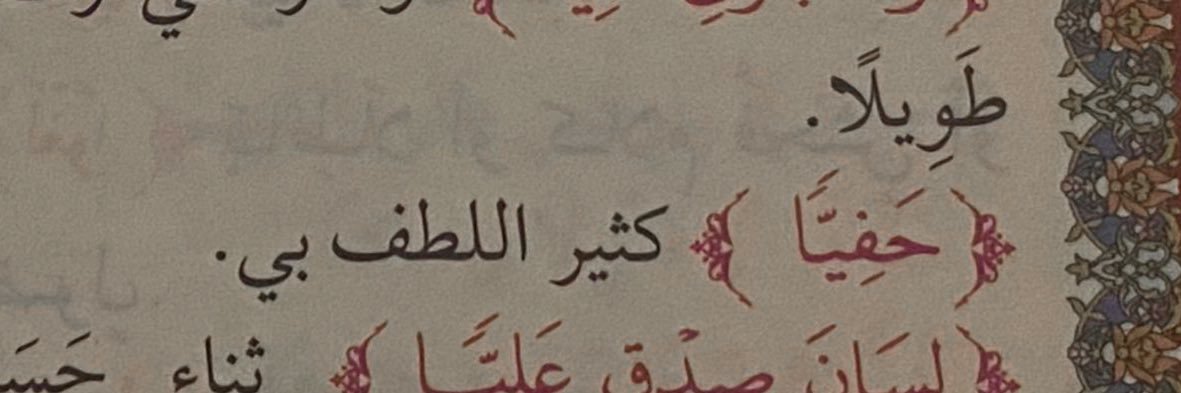 طَوِيلًا.
﴿ حَفِيَّا ﴾ كثير اللطف بي.
﴿ لِسَانَ صِدْقٍ عَلِيًّا ﴾ ثناء